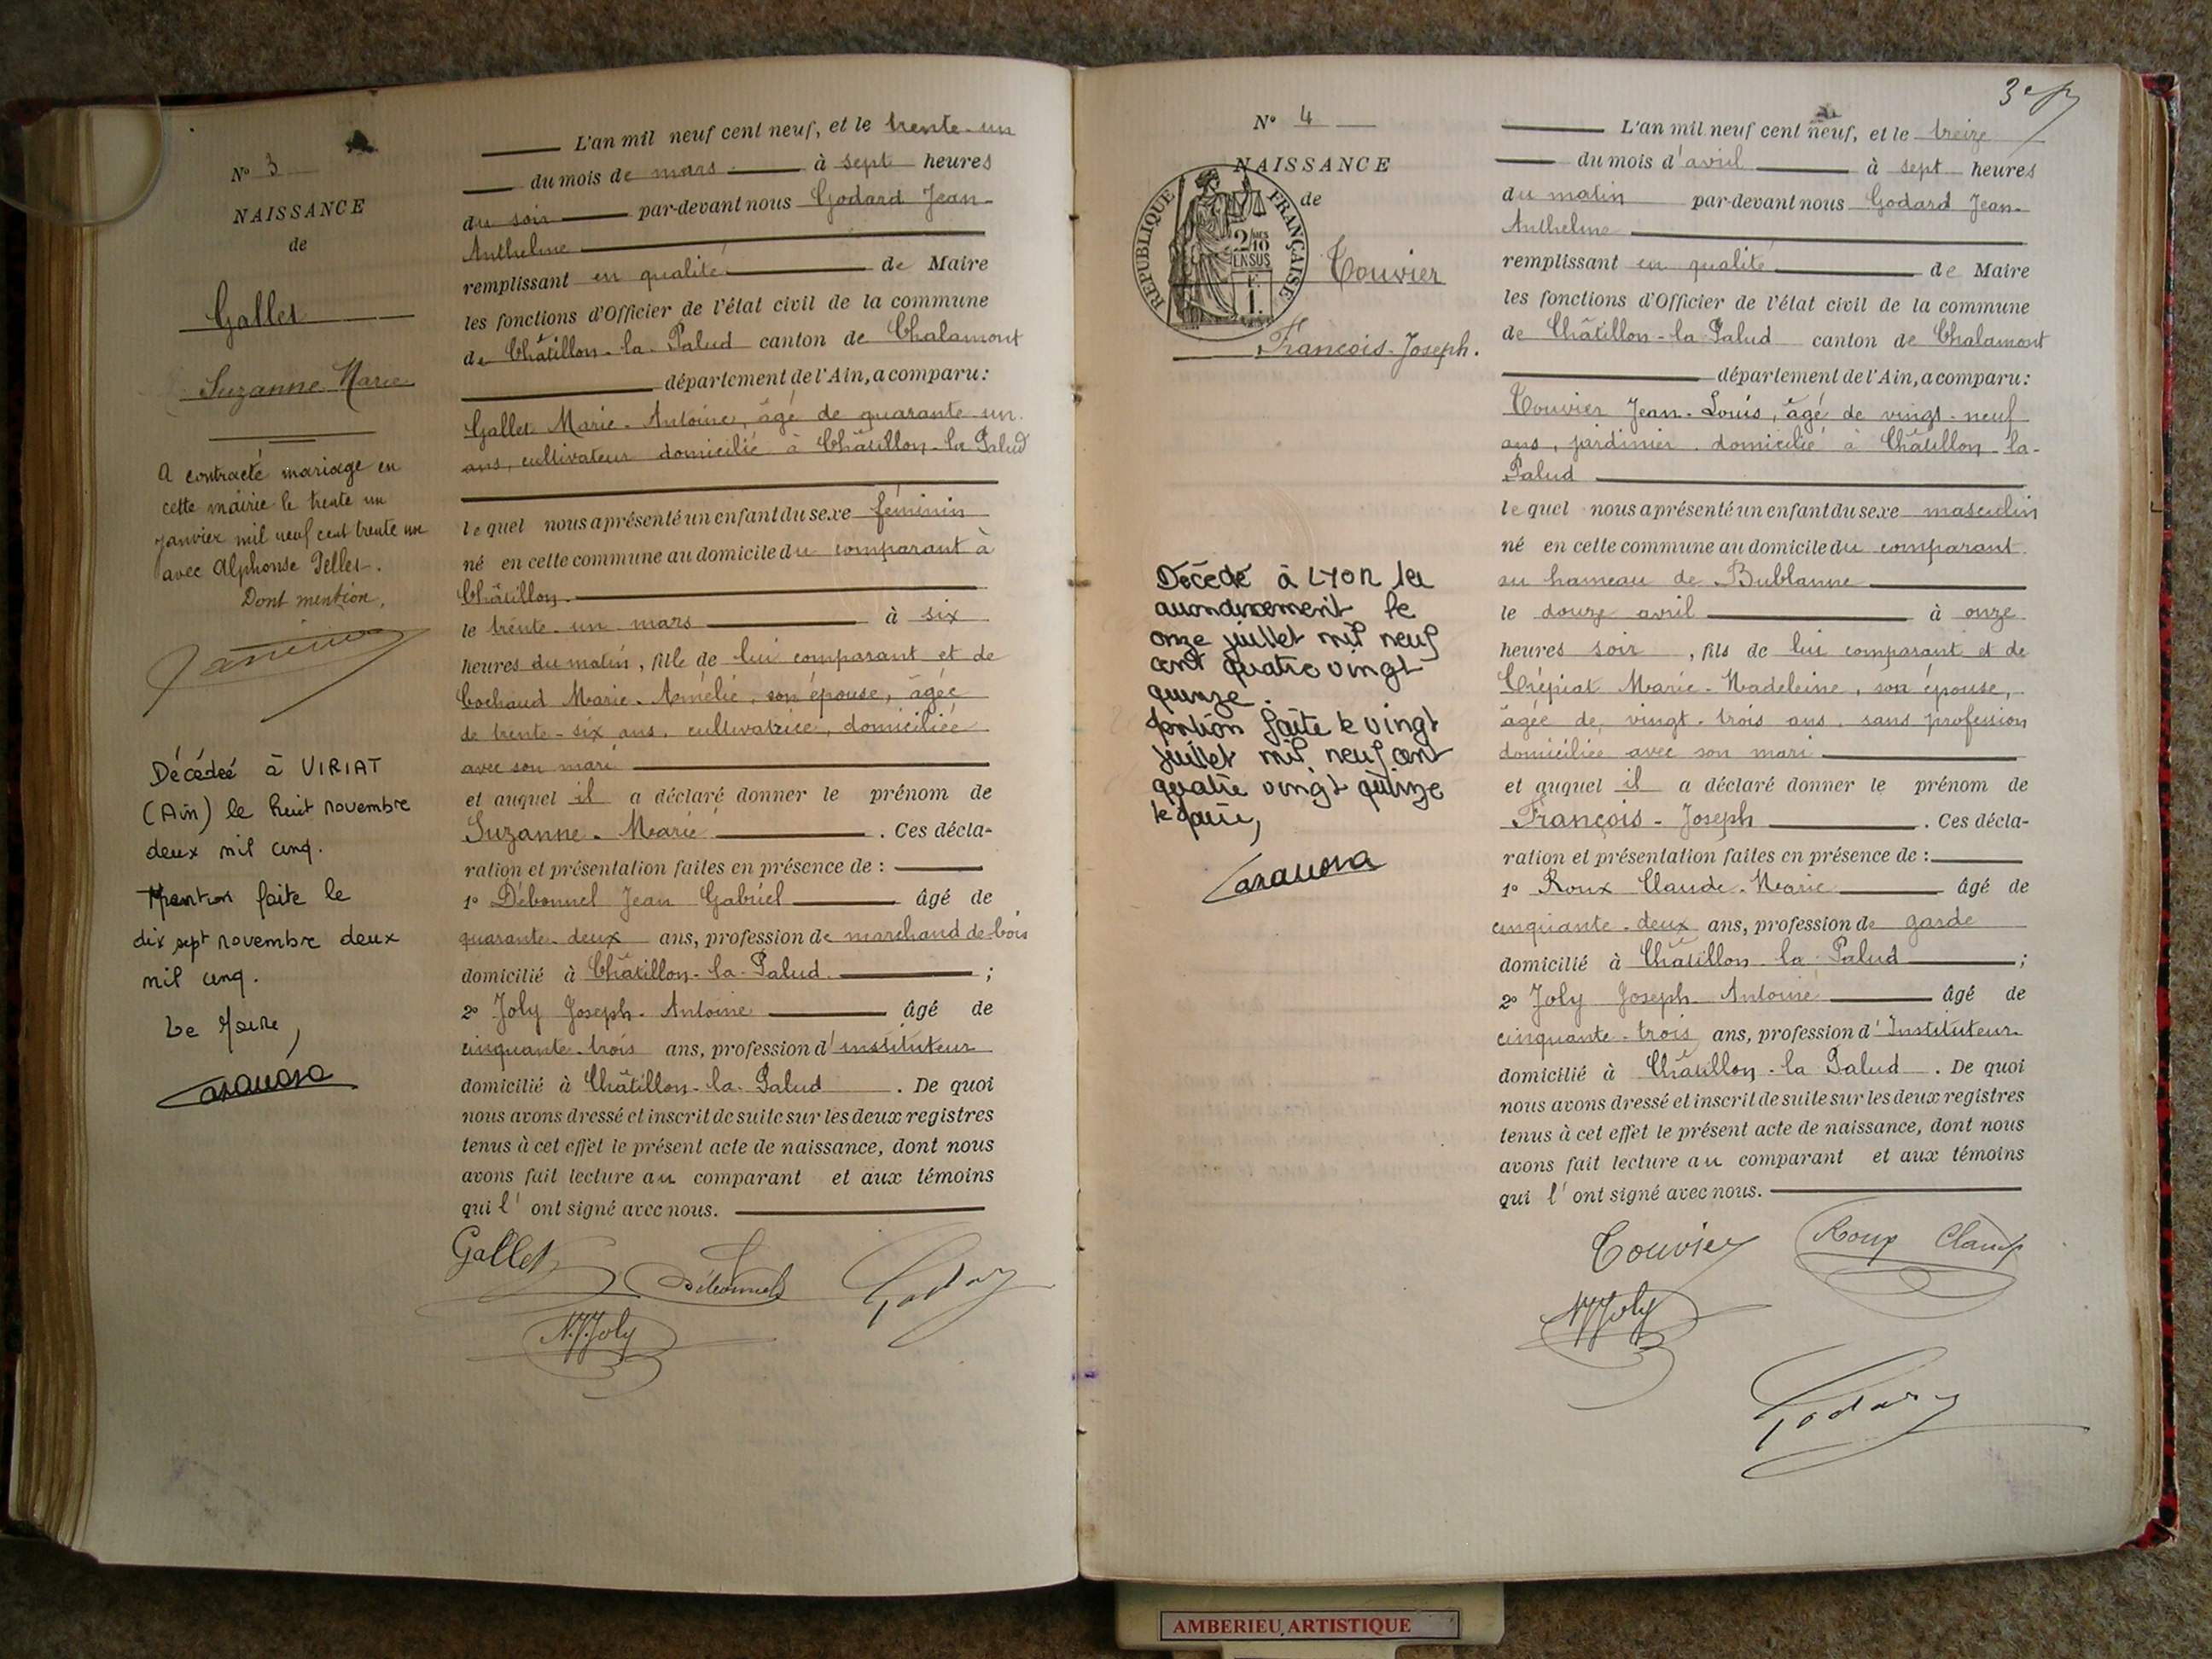 N° 3
NAISSANCE
de
Gallet
Suzanne Marie
A contracté mariage en
cette mairie le trente un
janvier mil neuf cent trente un
avec Alphonse Pellet.
Dont mention,
Décédeé à VIRIAT
(Ain) le huit novembre
deux mil cinq.
Mention faite le
dix sept novembre deux
mil cinq.
Le Maire,
L'an mil neuf cent neuf, et le trente-un
du mois de mars à sept heures
du soir par-devant nous Godard Jean-
Anthelme
remplissant en qualité de Maire
les fonctions d'Officier de l'état civil de la commune
de Châtillon-la-Palud canton de Chalamont
département de l'Ain, a comparu:
Gallet Marie-Antoine, âgé de quarante-un
ans, cultivateur domicilié à Châtillon-la-Palud
lequel nous a présenté un enfant du sexe féminin
né en cette commune au domicile du comparant à
Châtillon.
le trente-un mars à six
heures du matin, fille de lui comparant et de
Cochaud Marie-Amélie, son épouse, âgée
de trente-six ans, cultivatrice, domiciliée
avec son mari
et auquel il a déclaré donner le prénom de
Suzanne-Marie. Ces décla-
ration et présentation faites en présence de :
1° Débonnel Jean Gabriel âgé de
quarante-deux ans, profession de marchand de bois
domicilié à Châtillon-la-Palud ;
2° Joly Joseph-Antoine âgé de
cinquante-trois ans, profession d'instituteur
domicilié à Châtillon-la-Palud . De quoi
nous avons dressé et inscrit de suite sur les deux registres
tenus à cet effet le présent acte de naissance, dont nous
avons fait lecture au comparant et aux témoins
qui l'ont signé avec nous.
Gallet Débonnel Godard
Joly
3e
N° 4
NAISSANCE
de
REPUBLIQUE FRANÇAISE
2/10
EN SUS
Touvier
François-Joseph.
Décédé à LYON 1er
arrondissement le
onze juillet mil neuf
cent quatre vingt
quinze.
faite le vingt
juillet mil neuf cent
quatre vingt quinze
le Maire,
L'an mil neuf cent neuf, et le treize
du mois d'avril à sept heures
du matin par-devant nous Godard Jean-
Anthelme
remplissant en qualité de Maire
les fonctions d'Officier de l'état civil de la commune
de Châtillon-la-Palud canton de Chalamont
département de l'Ain, a comparu:
Touvier Jean-Louis, âgé de vingt-neuf
ans, jardinier domicilié à Châtillon-la-
Palud
lequel nous a présenté un enfant du sexe masculin
né en cette commune au domicile du comparant
au hameau de Bublanne
le douze avril à onze
heures soir, fils de lui comparant et de
Crépiat Marie-Madeleine, son épouse,
âgée de vingt-trois ans, sans profession
domiciliée avec son mari
et auquel il a déclaré donner le prénom de
François-Joseph. Ces décla-
ration et présentation faites en présence de :
1° Roux Claude-Marie âgé de
cinquante-deux ans, profession de garde
domicilié à Châtillon-la-Palud ;
2° Joly Joseph Antoine âgé de
cinquante-trois ans, profession d'Instituteur
domicilié à Châtillon-la Palud . De quoi
nous avons dressé et inscrit de suite sur les deux registres
tenus à cet effet le présent acte de naissance, dont nous
avons fait lecture au comparant et aux témoins
qui l'ont signé avec nous.
Touvier Roux Claude
Joly
Godard
AMBERIEU ARTISTIQUE